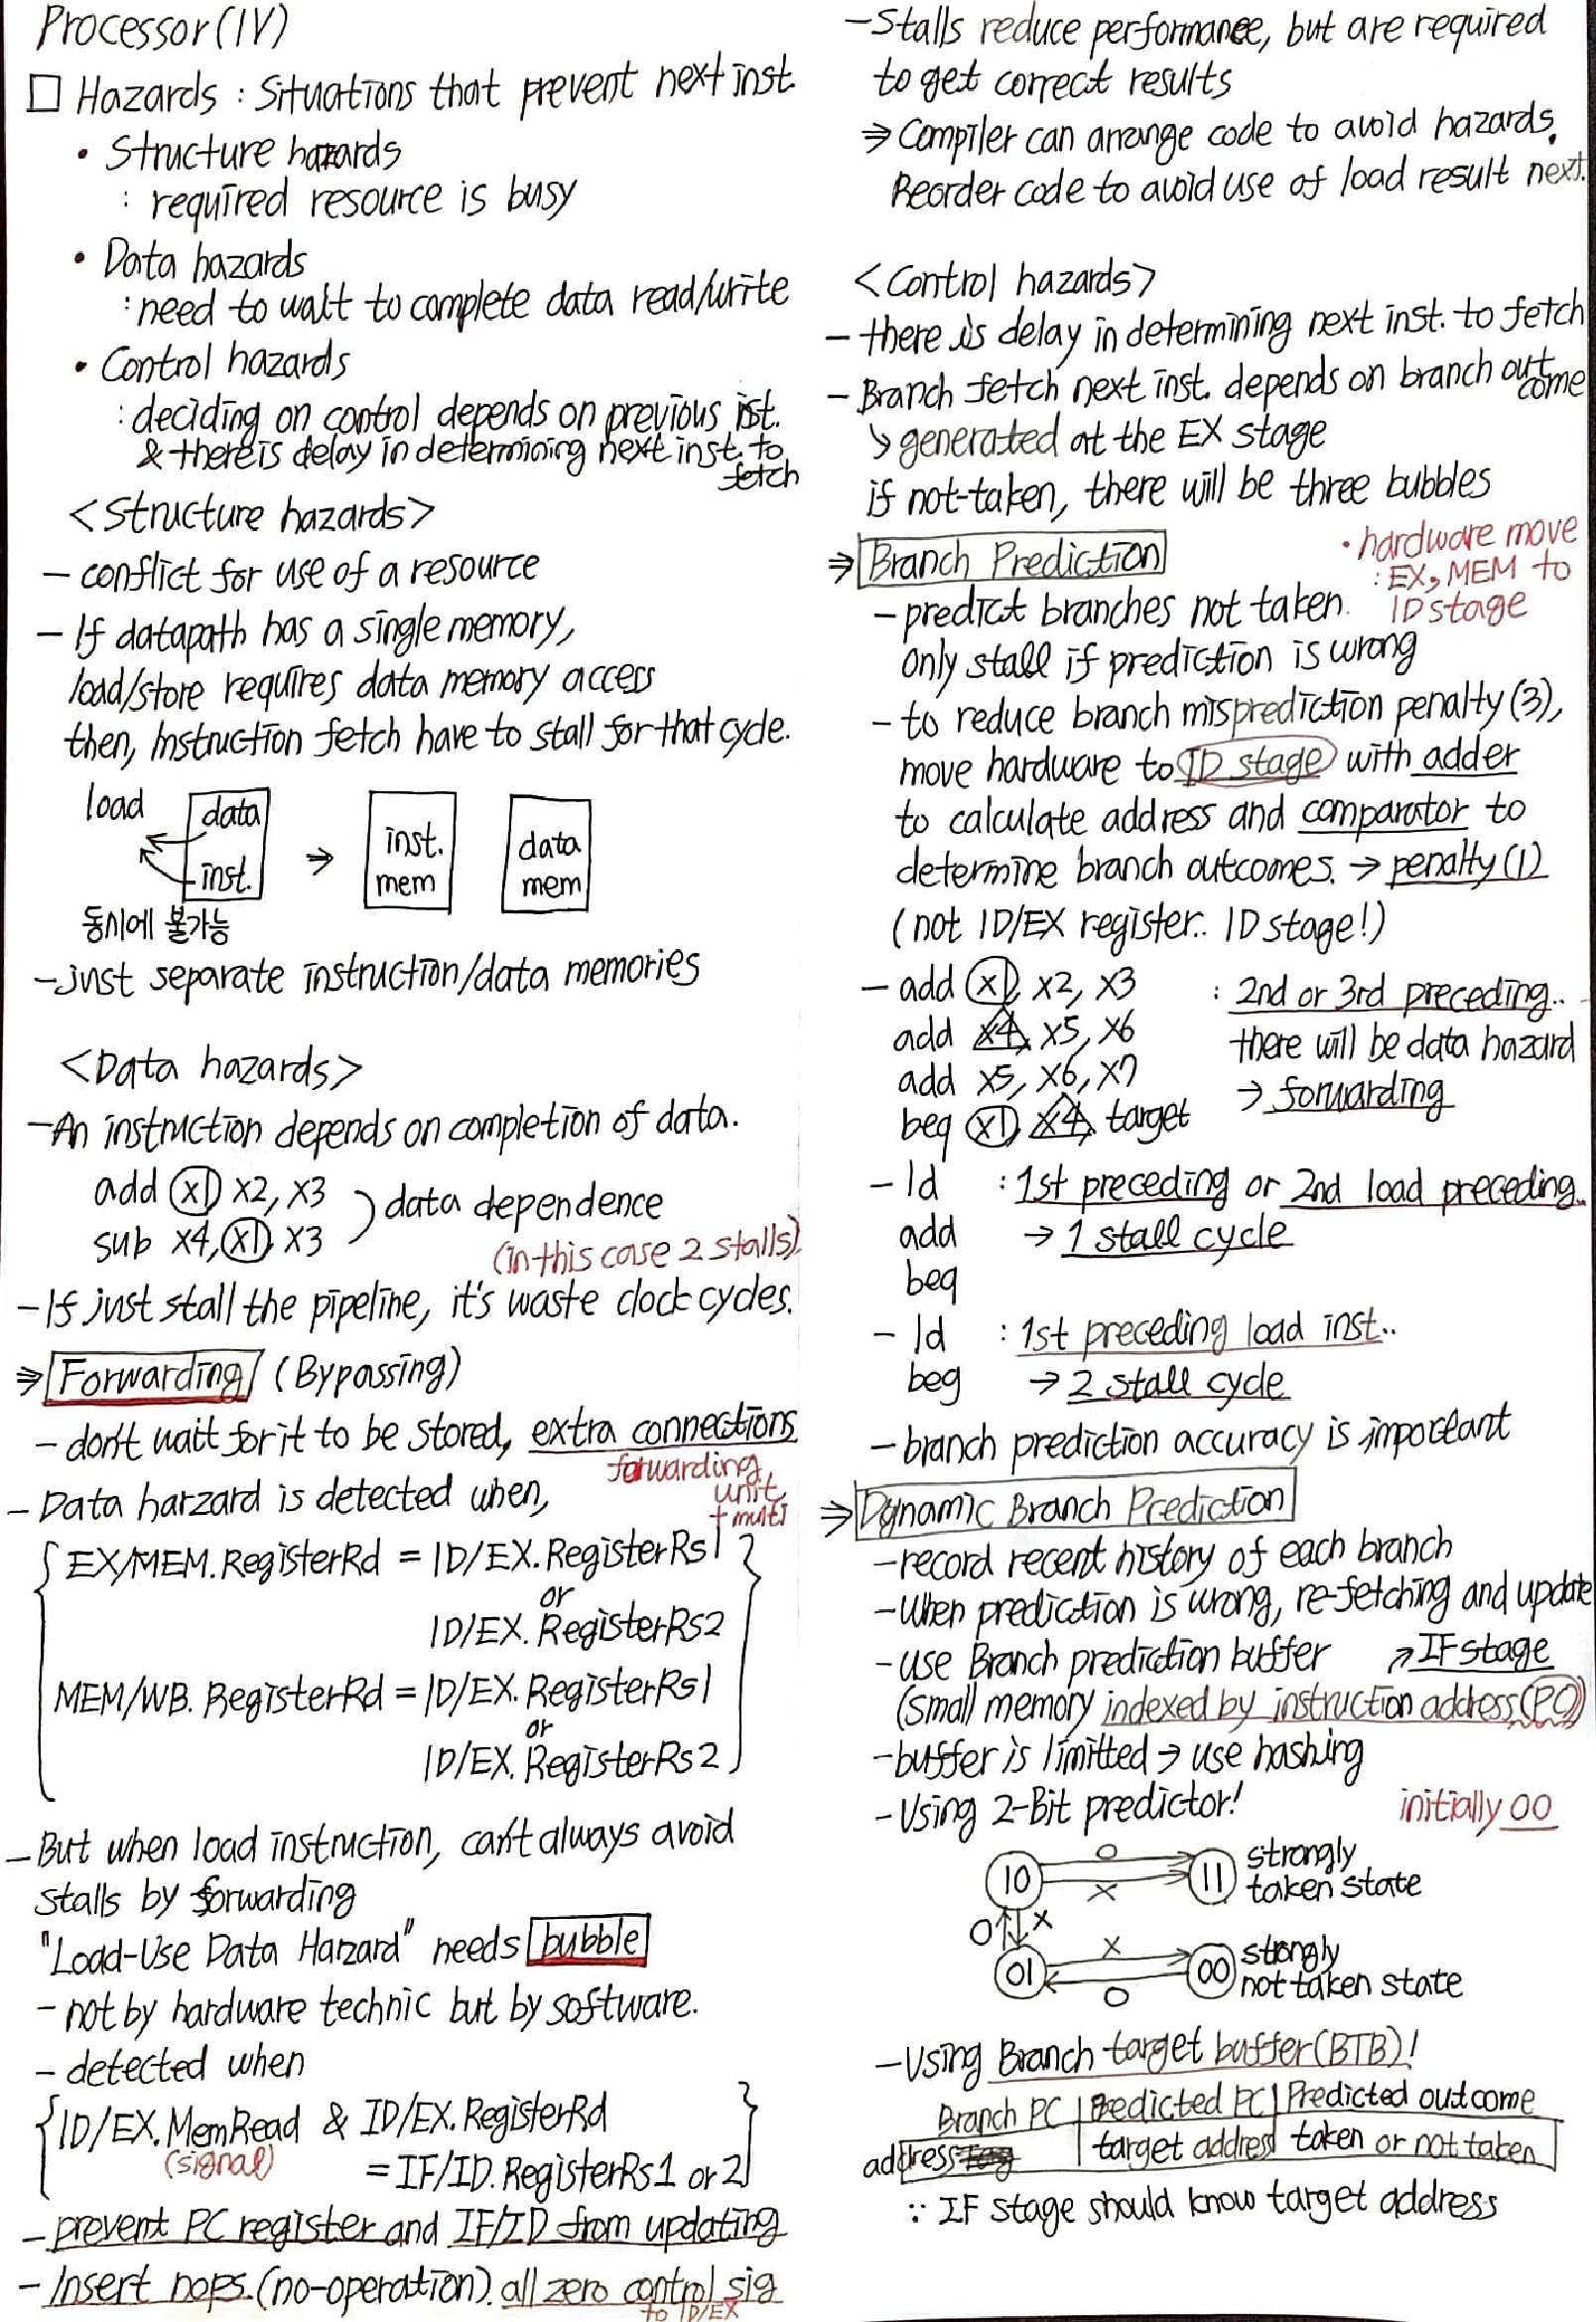 Processor(IV)
□ Hazards : Situations that prevent next inst.
• Structure hazards
: required resource is busy
• Data hazards
: need to wait to complete data read/write
• Control hazards
: deciding on control depends on previous ist.
& there is delay in determining next inst. to fetch
<Structure hazards>
- conflict for use of a resource
- If datapath has a single memory,
load/store requires data memory access
then, Instruction fetch have to stall for that cycle.
load data inst. ⇒ inst. mem data mem
동시에 불가능
- just separate instruction/data memories
<Data hazards>
- An instruction depends on completion of data.
add x1, x2, x3
sub x4, x1, x3
) data dependence
(in this case 2 stalls)
- If just stall the pipeline, it's waste clock cycles.
⇒ Forwarding (Bypassing)
- don't wait for it to be stored, extra connections
forwarding unit + multi
- Data harzard is detected when,
{ EX/MEM.RegisterRd = ID/EX.RegisterRs1
or
ID/EX.RegisterRs2
MEM/WB.RegisterRd = ID/EX.RegisterRs1
or
ID/EX.RegisterRs2 }
- But when load instruction, can't always avoid
stalls by forwarding
"Load-Use Data Harzard" needs bubble
- not by hardware technic but by software.
- detected when
{ ID/EX.MemRead & ID/EX.RegisterRd
(signal) = IF/ID.RegisterRs1 or 2 }
- prevent PC register and IF/ID from updating
- Insert nops.(no-operation). all zero control sig
to ID/EX
- Stalls reduce performance, but are required
to get correct results
⇒ Compiler can arrange code to avoid hazards.
Reorder code to avoid use of load result next.
<Control hazards>
- there is delay in determining next inst. to fetch
- Branch fetch next inst. depends on branch outcome
↳ generated at the EX stage
if not-taken, there will be three bubbles
⇒ Branch Prediction
• hardware move
: EX, MEM to
ID stage
- predict branches not taken.
only stall if prediction is wrong
- to reduce branch misprediction penalty(3),
move hardware to ID stage with adder
to calculate address and comparator to
determine branch outcomes. → penalty(1)
(not ID/EX register.. ID stage!)
- add x1, x2, x3 : 2nd or 3rd preceding..
add x4, x5, x6 there will be data hazard
add x5, x6, x7 → forwarding
beq x1, x4, target
- ld : 1st preceding or 2nd load preceding..
add → 1 stall cycle
beq
- ld : 1st preceding load inst..
beq → 2 stall cycle
- branch prediction accuracy is important
⇒ Dynamic Branch Prediction
- record recent history of each branch
- when prediction is wrong, re-fetching and update
- use Branch prediction buffer ↗ IF stage
(small memory indexed by instruction address(PC))
- buffer is limitted → use hashing
- Using 2-Bit predictor! initially 00
10 O X 11 strongly
taken state
O X
01 X O 00 strongly
not taken state
- Using Branch target buffer(BTB)!
Branch PC | Predicted PC | Predicted outcome
address | target address | taken or not taken
∵ IF stage should know target address